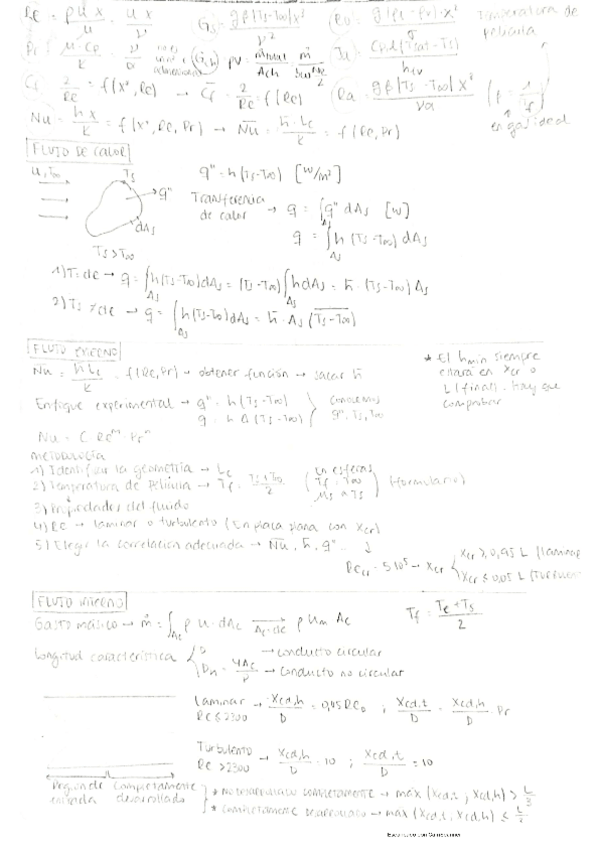 Re = ρ u x / μ = u x / ν
Gr = gβ(Ts-T∞)x³ / ν²
Temperatura de
película
Pr = μ·Cp / k = ν / α
Ja = Cp,l(Tsat-Ts) / hfv
Cf = 2/Re = f(x*, Re) → C̄f = 2/Re = f(Re)
Ra = gβ|Ts-T∞|x³ / να
(β = 1/Tf)
en gas ideal
Nu = h x / k = f(x*, Re, Pr) → N̄u = h̄·Lc / k = f(Re, Pr)
FLUJO DE CALOR
u, T∞
Ts
q"
dAs
Ts > T∞
q" = h(Ts-T∞) [W/m²]
Transferencia
de calor → q = ∫ q" dAs [W]
q = ∫As h(Ts-T∞) dAs
1) T=cte → q = ∫As h(Ts-T∞)dAs = (Ts-T∞) ∫As h dAs = h̄·(Ts-T∞) As
2) Ts ≠ cte → q = ∫As h(Ts-T∞)dAs = h̄·As (Ts-T∞)
FLUJO EXTERNO
Nu = h Lc / k = f(Re, Pr) → obtener función → sacar h̄
* El hmin siempre
estará en xcr o
L (final). Hay que
comprobar
Enfoque experimental → q" = h(Ts-T∞)
q = h A (Ts-T∞)
conocemos
q", Ts, T∞
Nu = C Re^m Pr^n
METODOLOGÍA
1) Identificar la geometría → Lc
2) Temperatura de Película → Tf = Ts+T∞ / 2
(en esferas
Tf = T∞
μs a Ts)
(formulario)
3) Propiedades del fluido
4) Re → laminar o turbulento (En placa plana con xcr)
5) Elegir la correlación adecuada → N̄u, h̄, q"...
Recr = 5·10⁵ → xcr
xcr ≥ 0,95 L (laminar
xcr ≤ 0,05 L (Turbulen
FLUJO INTERNO
Tf = Te+Ts / 2
Gasto másico → ṁ = ∫Ac ρ u·dAc → Ac=cte ρ Um Ac
Longitud característica
D → conducto circular
Dh = 4Ac / P → conducto no circular
Laminar → xcd,h / D = 0,05 ReD ; xcd,t / D = xcd,h / D · Pr
Re ≤ 2300
Turbulento → xcd,h / D = 10 ; xcd,t / D = 10
Re > 2300
Región de
entrada
Completamente
desarrollada
* no desarrollado completamente → max (xcd,t ; xcd,h) >
* completamente desarrollado → max (xcd,t, xcd,h) ≤
Escaneado con CamScanner